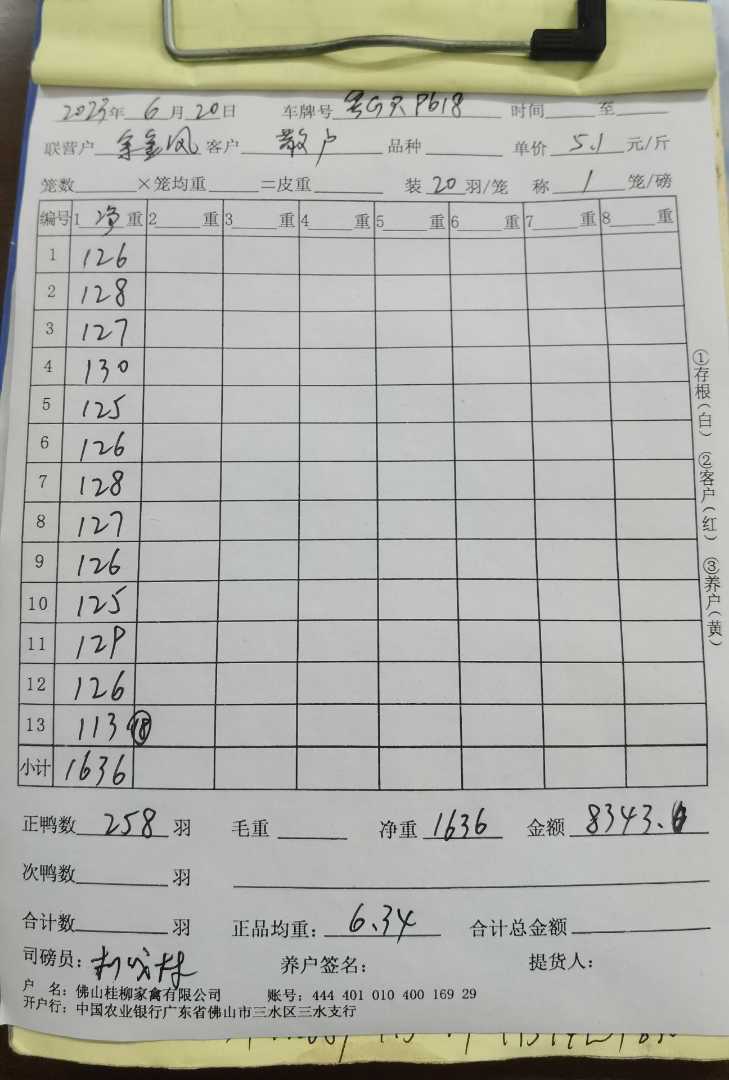 2023年 6 月 20 日 车牌号 粤G P618 时间 至
联营户 客户 散户 品种 单价 5.1 元/斤
笼数 ×笼均重 =皮重 装 20 羽/笼 称 1 笼/磅
编号 1 净 重 2 重 3 重 4 重 5 重 6 重 7 重 8 重
1 126
2 128
3 127
4 130
5 125
6 126
7 128
8 127
9 126
10 125
11 129
12 126
13 113 18
小计 1636
正鸭数 258 羽 毛重 净重 1636 金额 8343.6
次鸭数 羽
合计数 羽 正品均重: 6.34 合计总金额
司磅员: 养户签名: 提货人:
户 名: 佛山桂柳家禽有限公司 账号: 444 401 010 400 169 29
开户行: 中国农业银行广东省佛山市三水区三水支行
①存根(白) ②客户(红) ③养户(黄)